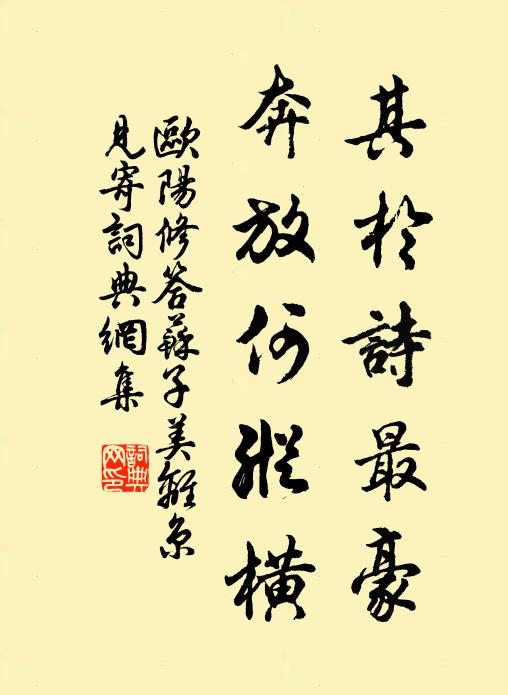 其於詩最豪
奔放何縱橫
歐陽修答蘇子美離京
見寄詞典網集
詞典
网印